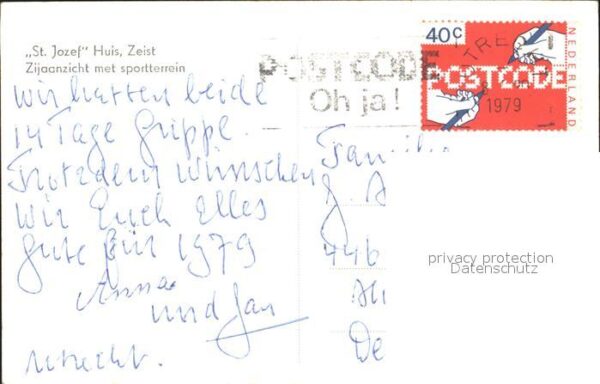 „St. Jozef" Huis, Zeist
Zijaanzicht met sportterrein
Wir hatten beide
14 Tage Grippe.
Trotzdem wünschen
Wir Euch Alles
Gute für 1979
Anna
und Jan
Utrecht.
POSTCODE
Oh ja!
UTRE
1979
40c
POSTCODE
NEDERLAND
Famili
J. A
446
De
privacy protection
Datenschutz